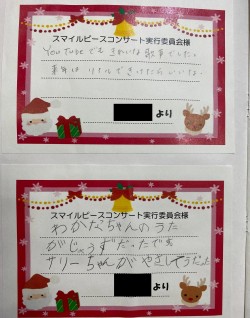 スマイルピースコンサート実行委員会様
YouTubeでもきれいな歌声でした。
来年はリアルできけたらいいな
より
スマイルピースコンサート実行委員会様
わかなちゃんのうた
がじょうずだったです
サリーちゃんがやさしそうだった
より